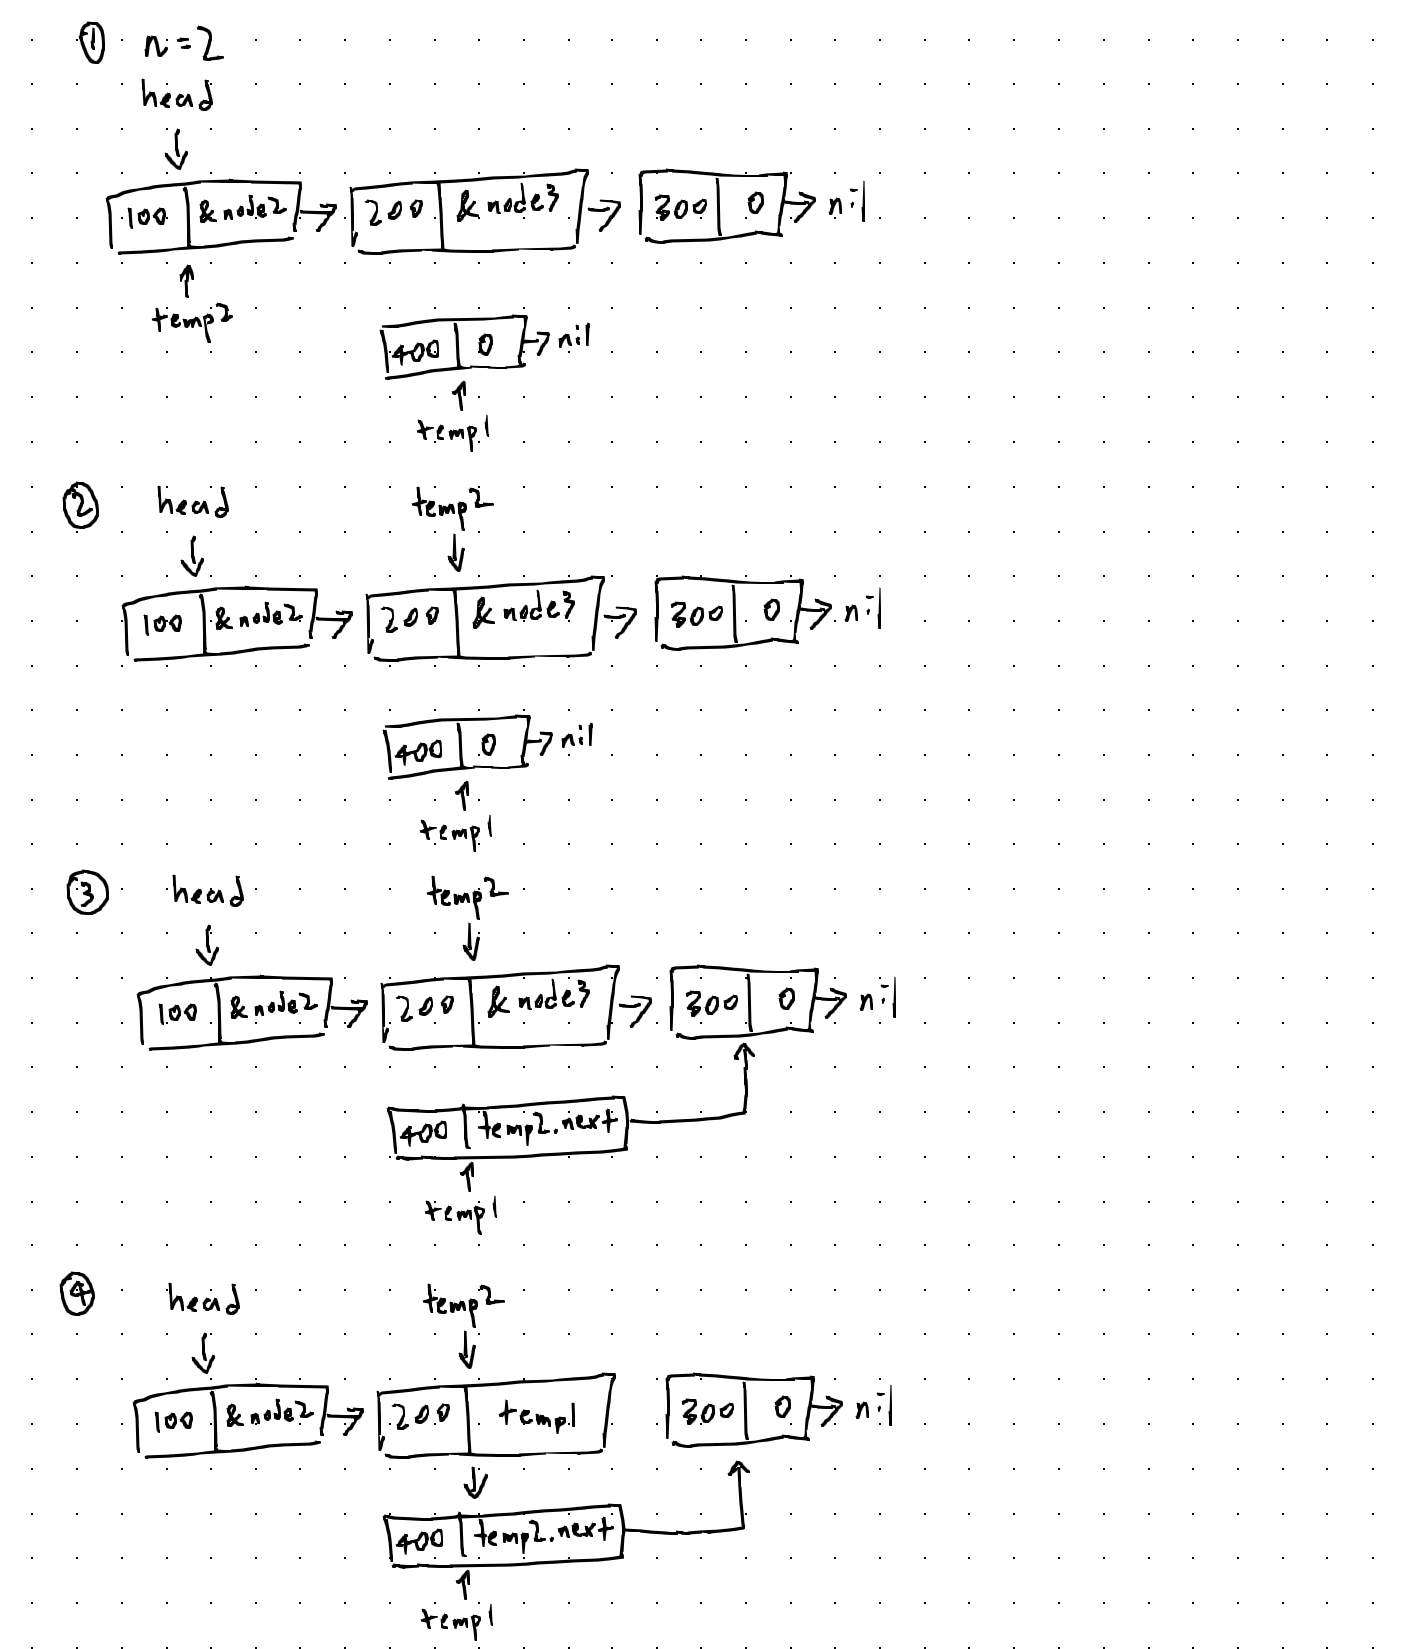 ① n=2
head
100 &node2 → 200 &node3 → 300 0 → nil
temp2
400 0 → nil
temp1
② head temp2
100 &node2 → 200 &node3 → 300 0 → nil
400 0 → nil
temp1
③ head temp2
100 &node2 → 200 &node3 → 300 0 → nil
400 temp2.next
temp1
④ head temp2
100 &node2 → 200 temp1 300 0 → nil
400 temp2.next
temp1